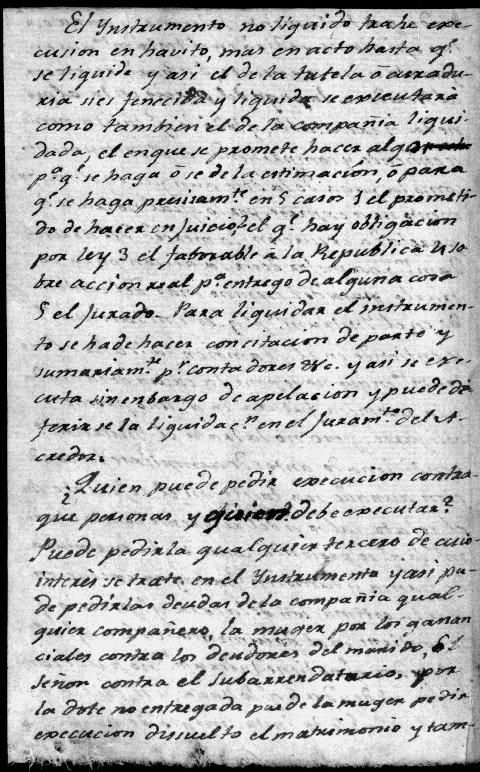 El Ynstrumento no liquido trahe exe-
cusion en havito, mas en acto hasta q.^e
se liquide y asi el de la tutela ô curadu-
ria si es fenecida y liquida se executarà
como tambien el de la compañia liqui-
dada, el en que se promete hacer algo
p.^a q.^e se haga ô se de la estimacion, ô para
q.^e se haga precisam.^te en 5 casos 1 el prometi-
do de hacer en Juicio, 2 el q.^e hay obligacion
por ley 3 el faborable à la Republica 4 so-
bre accion real p.^a entrego de alguna cosa
5 el Jurado. Para liquidar el instrumen-
to se ha de hacer con citacion de parte y
sumariam.^te p.^r contadores &c. y asi se exe-
cuta sin enbargo de apelacion y puede de-
ferirse la liquidac.^n en el Juram.^to del A-
credor.
¿Quien puede pedir execucion contra
que personas y debe executar?
Puede pedirla qualquier tercero de cuio
interès se trate en el Ynstrumento y asi pu-
de pedir las deudas de la compañia qual-
quier compañero, la muger por los ganan
ciales contra los deudores del marido, èl
señor contra el subarrendatario, por
la dote no entregada puede la muger pedir
execucion disuelto el matrimonio y tam-